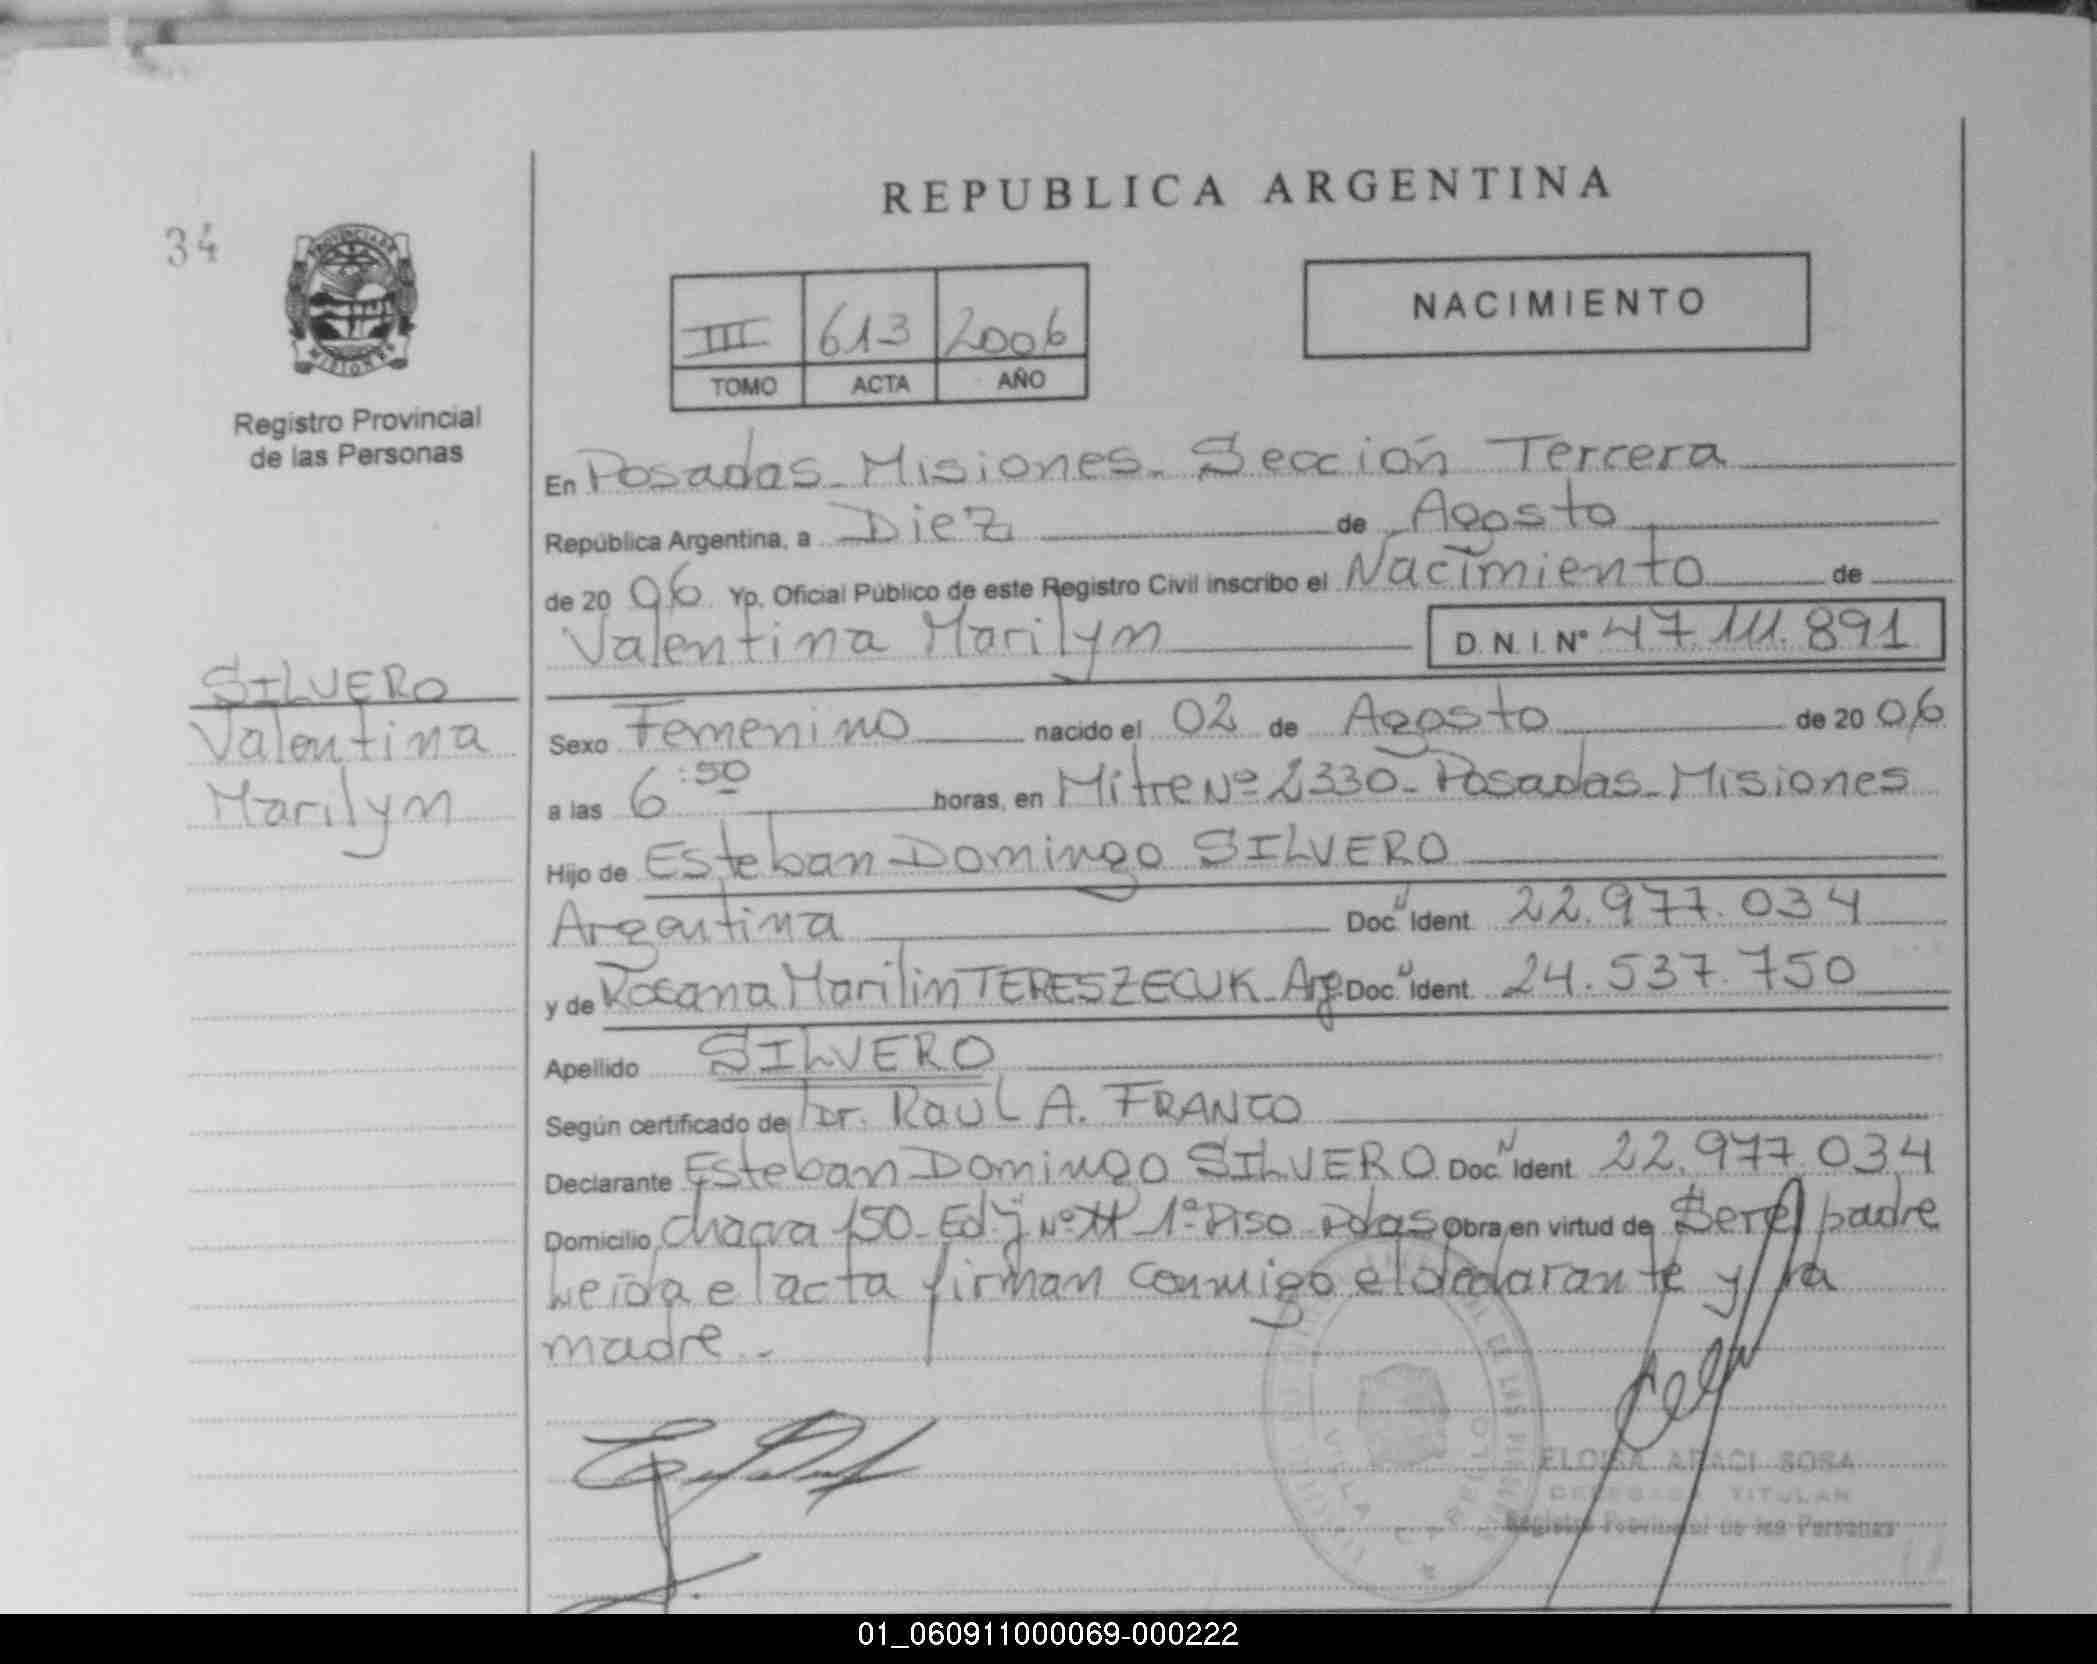 REPUBLICA ARGENTINA
34
PROVINCIA DE
MISIONES
Registro Provincial
de las Personas
III 613 2006
TOMO ACTA AÑO
NACIMIENTO
En Posadas - Misiones - Sección Tercera
República Argentina, a Diez de Agosto
de 20 06 Yo, Oficial Público de este Registro Civil inscribo el Nacimiento de
Valentina Marilyn D.N.I. Nº 47.111.891
SILVERO
Valentina
Marilyn
Sexo Femenino nacido el 02 de Agosto de 20 06
a las 6:50 horas, en Mitre Nº 2330 - Posadas - Misiones
Hijo de Esteban Domingo SILVERO
Argentina Doc. N Ident. 22.977.034
y de Rosana Marilin TERESZECUK - Arg. Doc. N Ident. 24.537.750
Apellido SILVERO
Según certificado de Dr. Raul A. FRANCO
Declarante Esteban Domingo SILVERO Doc. N Ident. 22.977.034
Domicilio chacra 150 - Ed. J Nº 1º Piso - Pdas Obra en virtud de Ser el padre
Leída el acta firman conmigo el declarante y la
madre.-
VILLA CABELLO
ELOISA ARACI SOSA
DELEGADA TITULAR
Registro Provincial de las Personas
01_060911000069-000222